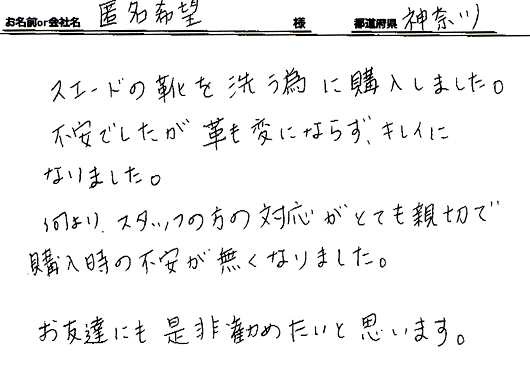 お名前or会社名 匿名希望 様 都道府県 神奈川
スエードの靴を洗う為に購入しました。
不安でしたが革も変にならず、キレイに
なりました。
何より、スタッフの方の対応がとても親切で
購入時の不安が無くなりました。
お友達にも是非勧めたいと思います。